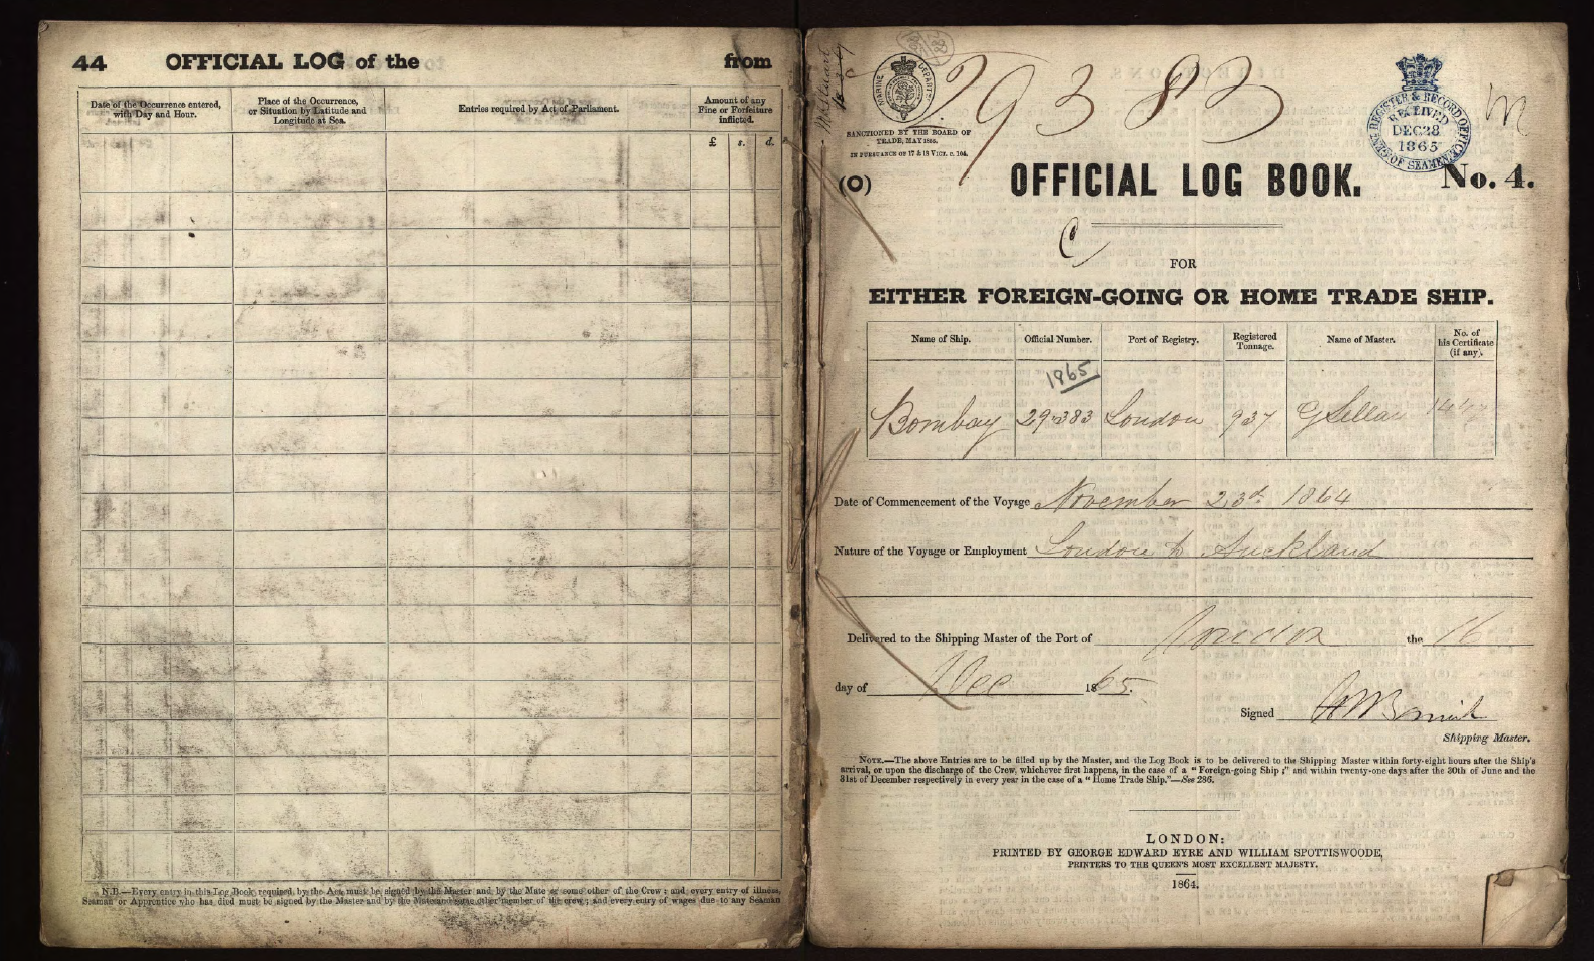 44 OFFICIAL LOG of the from
Date of the Occurrence entered, with Day and Hour.
Place of the Occurrence, or Situation by Latitude and Longitude at Sea.
Entries required by Act of Parliament.
Amount of any Fine or Forfeiture inflicted.
£ s. d.
N.B.—Every entry in this Log Book required by the Act must be signed by the Master and by the Mate or some other of the Crew; and every entry of illness,
Seaman or Apprentice who has died must be signed by the Master and by the Mate and some other member of the crew; and every entry of wages due to any Seaman
MARINE DEPARTT
29383
SANCTIONED BY THE BOARD OF
TRADE, MAY 1855,
IN PURSUANCE OF 17 & 18 VICT. c. 104.
REGISTER & RECORD OFFICE OF SEAMEN
RECEIVED
DEC 28
1865
m
(O)
OFFICIAL LOG BOOK.
No. 4.
C
FOR
EITHER FOREIGN-GOING OR HOME TRADE SHIP.
Name of Ship. Official Number. Port of Registry. Registered Tonnage. Name of Master. No. of his Certificate (if any).
1865
Bombay 29383 London 937 G Sellars
Date of Commencement of the Voyage November 23d 1864
Nature of the Voyage or Employment London to Auckland
Delivered to the Shipping Master of the Port of London the 16
day of Dec 1865.
Signed
Shipping Master.
NOTE.—The above Entries are to be filled up by the Master, and the Log Book is to be delivered to the Shipping Master within forty-eight hours after the Ship's
arrival, or upon the discharge of the Crew, whichever first happens, in the case of a "Foreign-going Ship;" and within twenty-one days after the 30th of June and the
31st of December respectively in every year in the case of a "Home Trade Ship."—See 286.
LONDON:
PRINTED BY GEORGE EDWARD EYRE AND WILLIAM SPOTTISWOODE,
PRINTERS TO THE QUEEN'S MOST EXCELLENT MAJESTY.
1864.